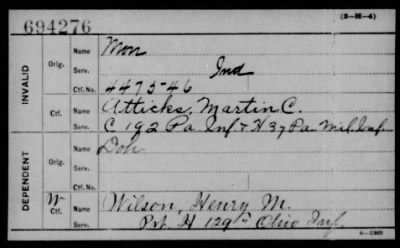 694276
(3-H-4)
INVALID
Orig.
Name
Mon
Serv.
Ind
Ctf. No.
4475-46
Ctf.
Name
Atticks, Martin C.
Serv.
C 192 Pa Inf + H 37 Pa Mil. Inf.
DEPENDENT
Orig.
Name
Don
Serv.
Ctf. No.
W
Ctf.
Name
Wilson, Henry M.
Serv.
Pvt. H 129th Ohio Inf.